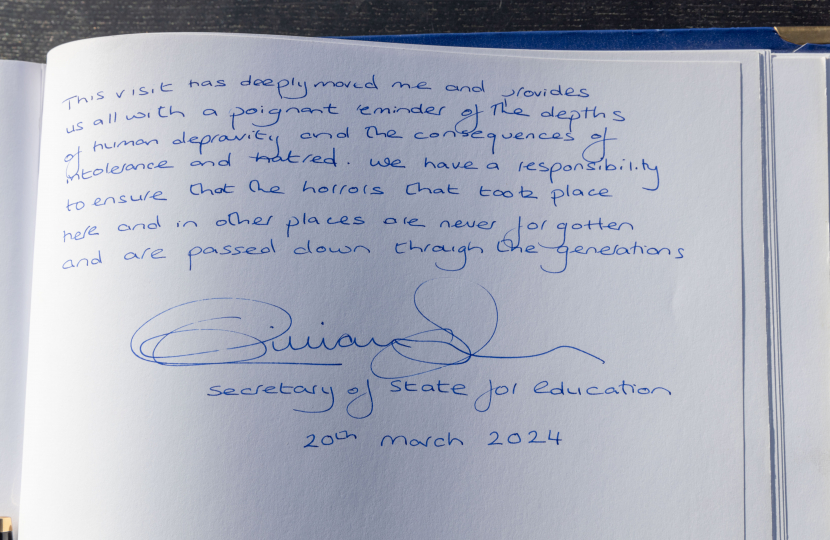 This visit has deeply moved me and provides
us all with a poignant reminder of the depths
of human depravity and the consequences of
intolerance and hatred. We have a responsibility
to ensure that the horrors that took place
here and in other places are never forgotten
and are passed down through the generations
Secretary of State for Education
20th March 2024